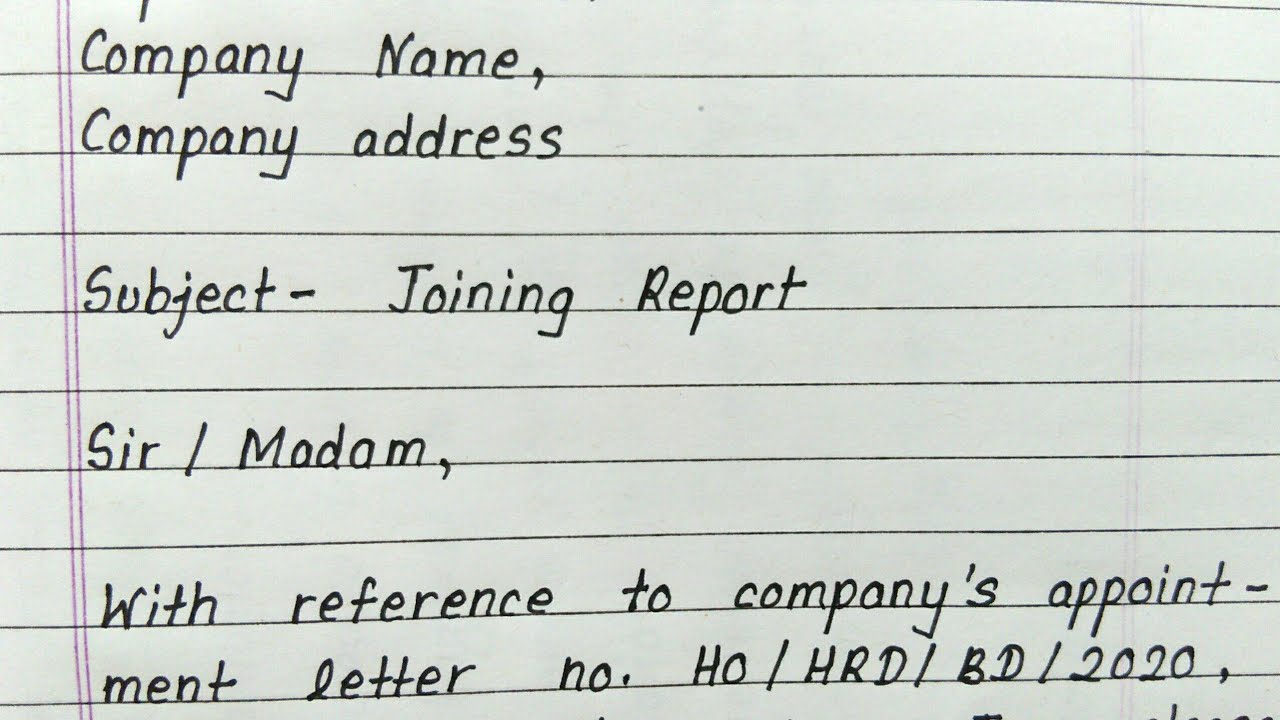 Company Name,
Company address
Subject- Joining Report
Sir / Madam,
With reference to company's appoint-
ment letter no. HO/HRD/BD/2020,